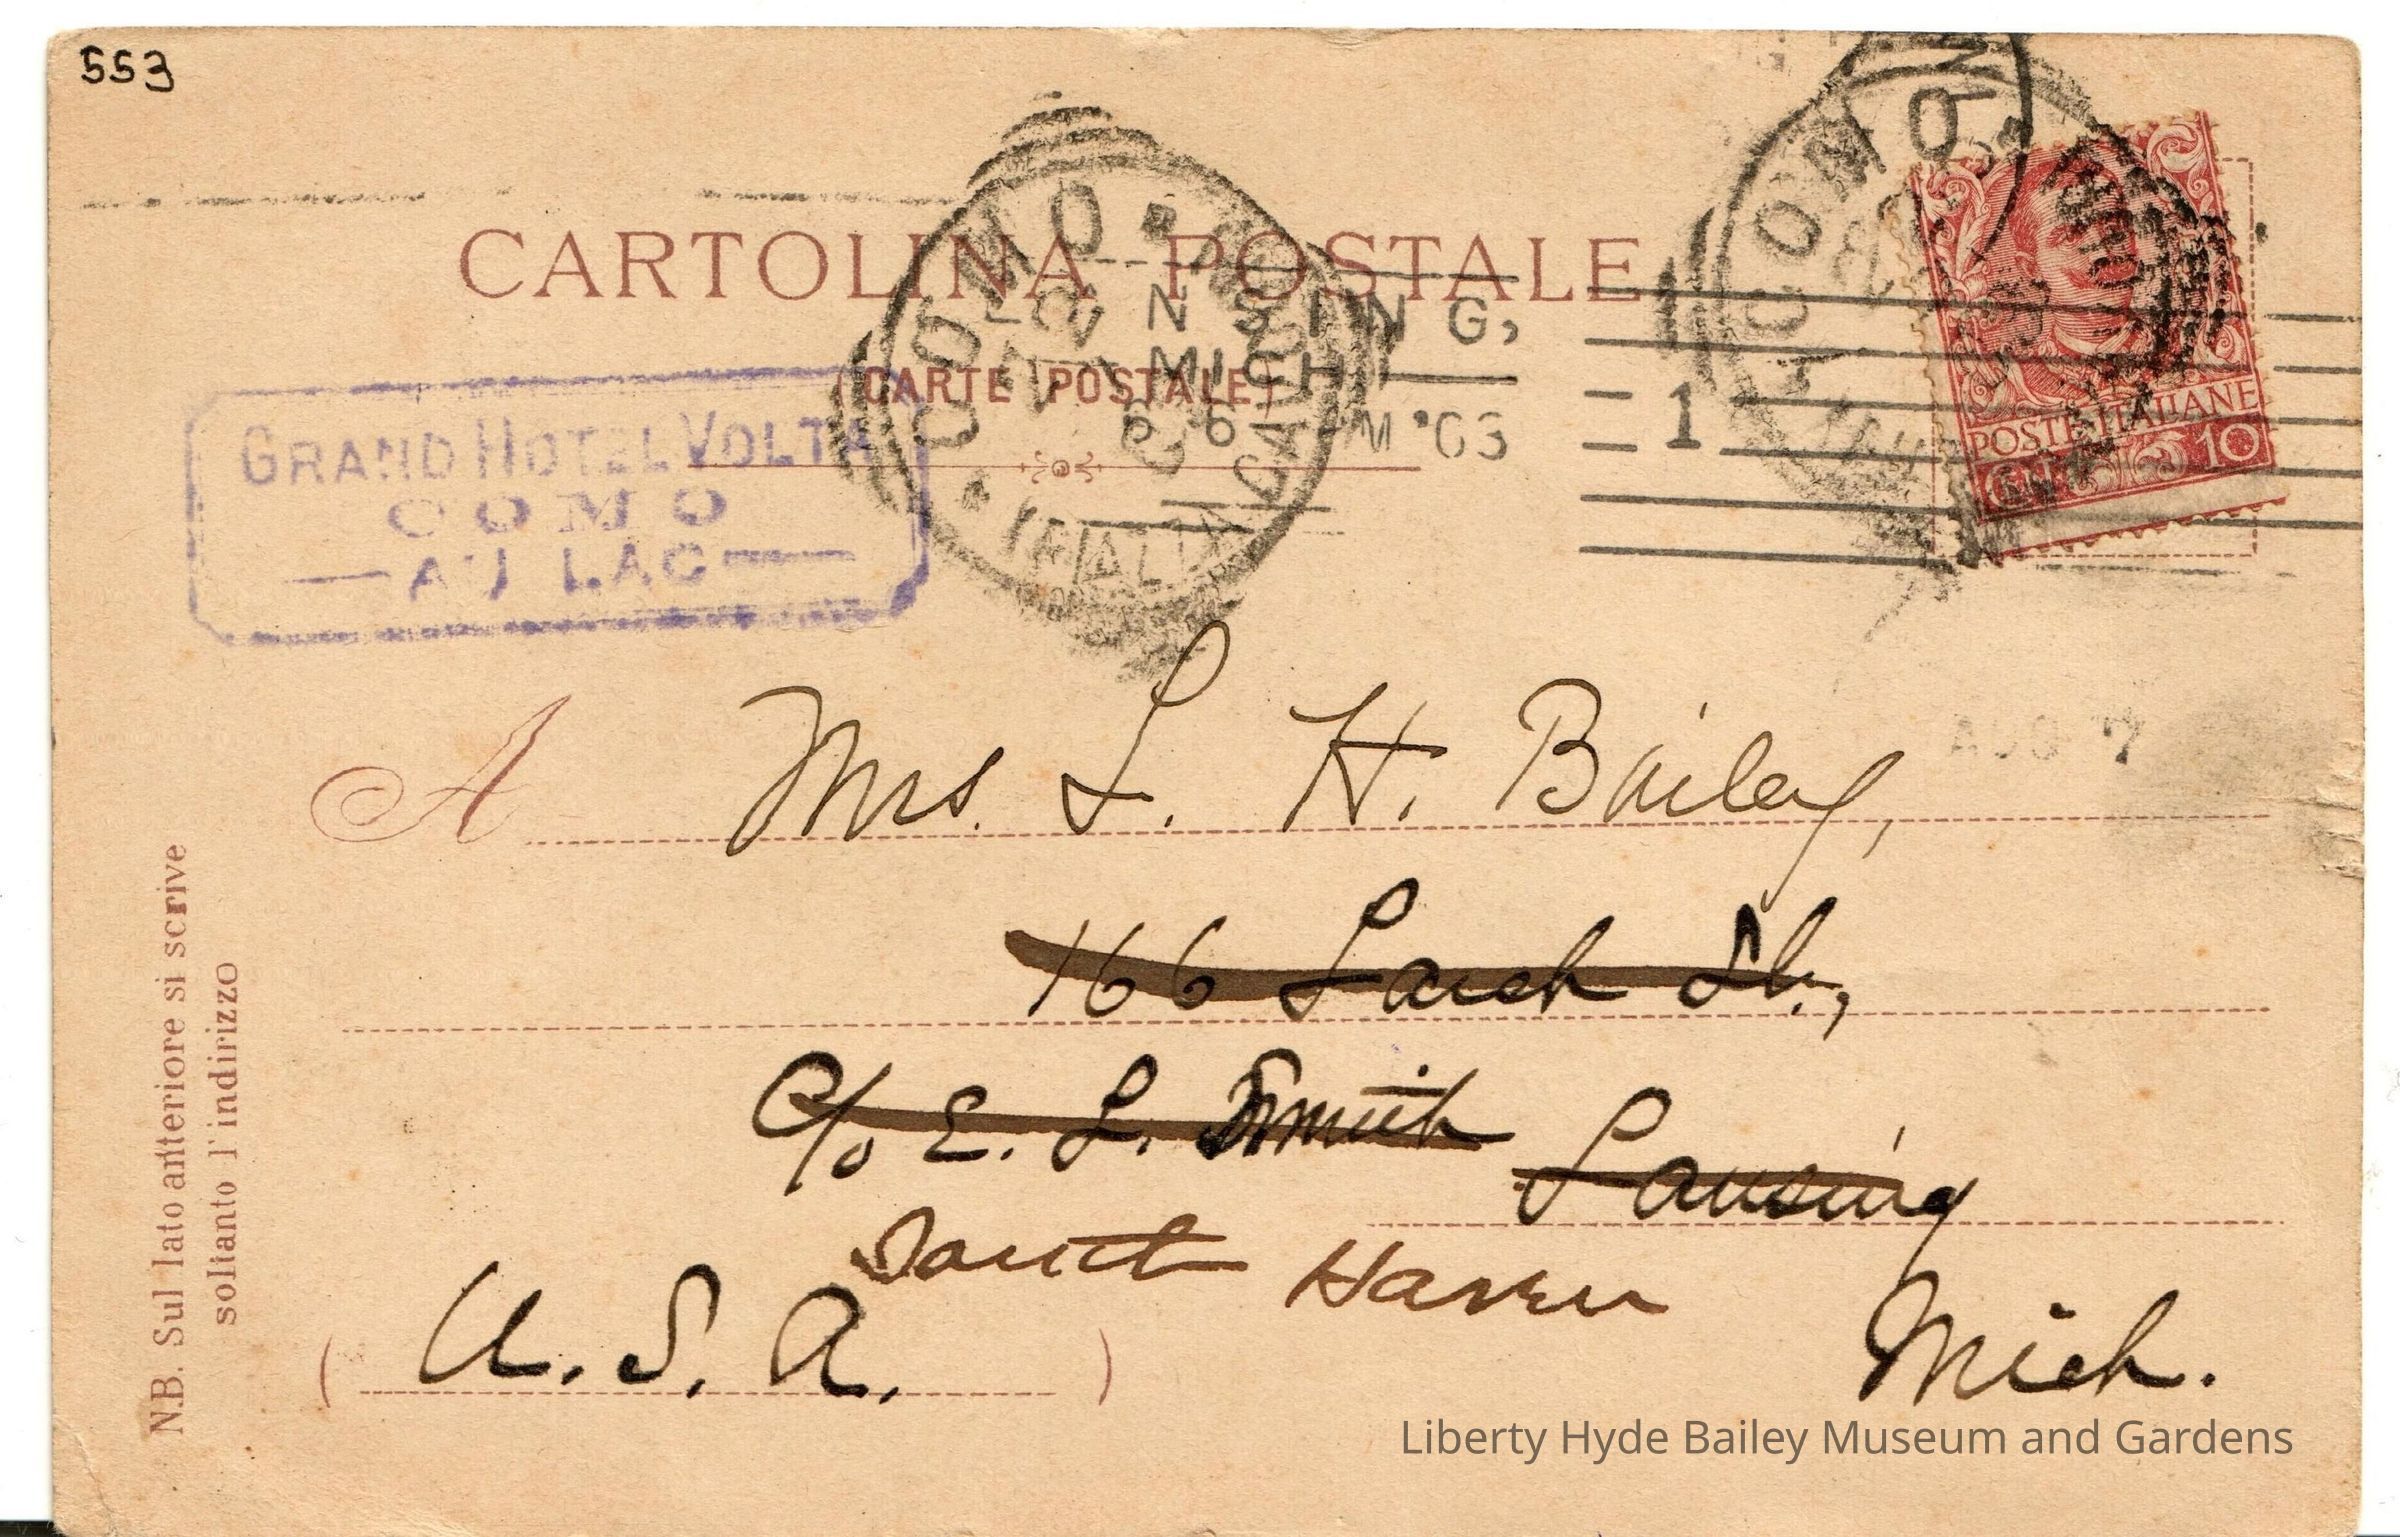 553
CARTOLINA POSTALE
(CARTE POSTALE)
COMO
ITALIA
LANSING,
MICH
'03
1
COMO
POSTE ITALIANE
CEN 10
GRAND HOTEL VOLTA
COMO
AU LAC
AUG 7
A Mrs. L. H. Bailey,
166 Larch St.,
c/o E. L. Smith Lansing
South Haven
U. S. A.
Mich.
N.B. Sul lato anteriore si scrive
soltanto l'indirizzo
Liberty Hyde Bailey Museum and Gardens